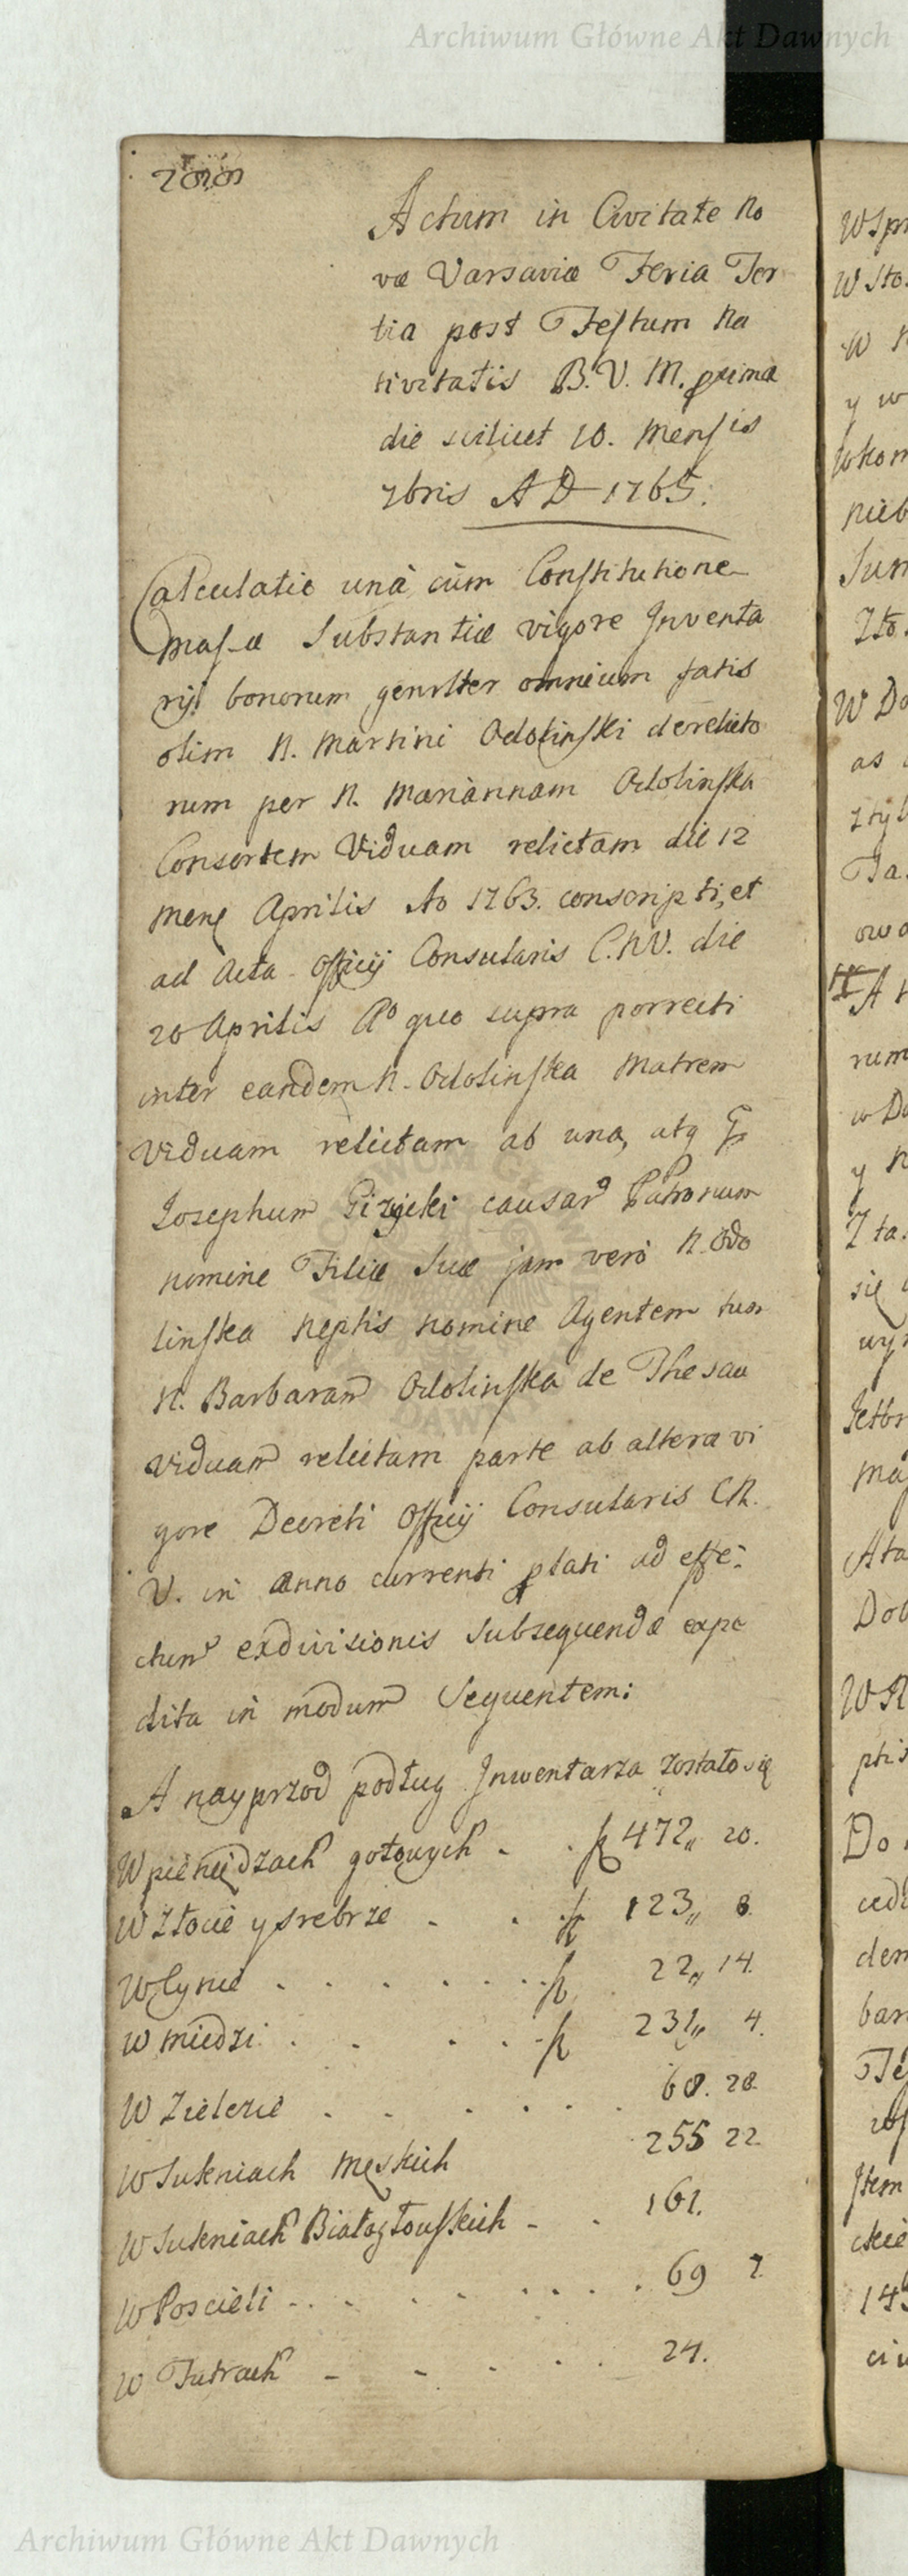 Archiwum Główne Akt Dawnych
Actum in Civitate No
væ Varsaviæ Feria Ter
tia post Festum Na
tivitatis B. V. M. prima
die scilicet 10. Mensis
7bris AD 1765.
Calculatio unà cùm Constitutione
Massæ Substantiæ vigore Inventa
rij bonorum genrlter omnium fatis
olim N. Martini Odolinski derelicto
rum per N. Mariànnam Odolinska
Consortem Viduam relictam die 12
Mens Aprilis Ao 1763. conscripti, et
ad Acta Officij Consularis C.N.V. die
20 Aprilis Ao quo supra porrecti
inter eandem N. Odolinska Matrem
Viduam relictam ab una, atq G
Josephum Gizycki causar Patronum
nomine Filiæ Suæ jam verò N. Odo
linska Neptis nomine Agentem
N. Barbaram Odolinska de Thesau
Viduam relictam parte ab altera vi
gore Decreti Officij Consularis C.N.
V. in anno currenti lati ad effe-
ctum exdivisionis Subsequendæ expe
dita in modum Sequentem:
A nayprzod podług Inwentarza zostało się
W pieniędzach gotowych - . f 472,, 20.
W Złocie y srebrze . . f 123,, 8.
W Cynie . . . . . . . f 22,, 14.
W miedzi . . . . . f 231,, 4.
W Zielezie . . . . . . 68. 28.
W Sukniach Męskich 255 22
W Sukniach Białogłouskich - . 161.
W Poscieli - . . . . . . . . 69 7.
W Futrach - - . . . 24.
W Spr
W Sto
W
y w
W kom
nieb
Sum
Ito
W Do
as
Ta
owa
A
rum
w Do
y
Z ta
się
wyr
Ma
Ata
Dob
W
Do
cedu
dem
bar
Te
Item
ckie
145
ciu
Archiwum Główne Akt Dawnych